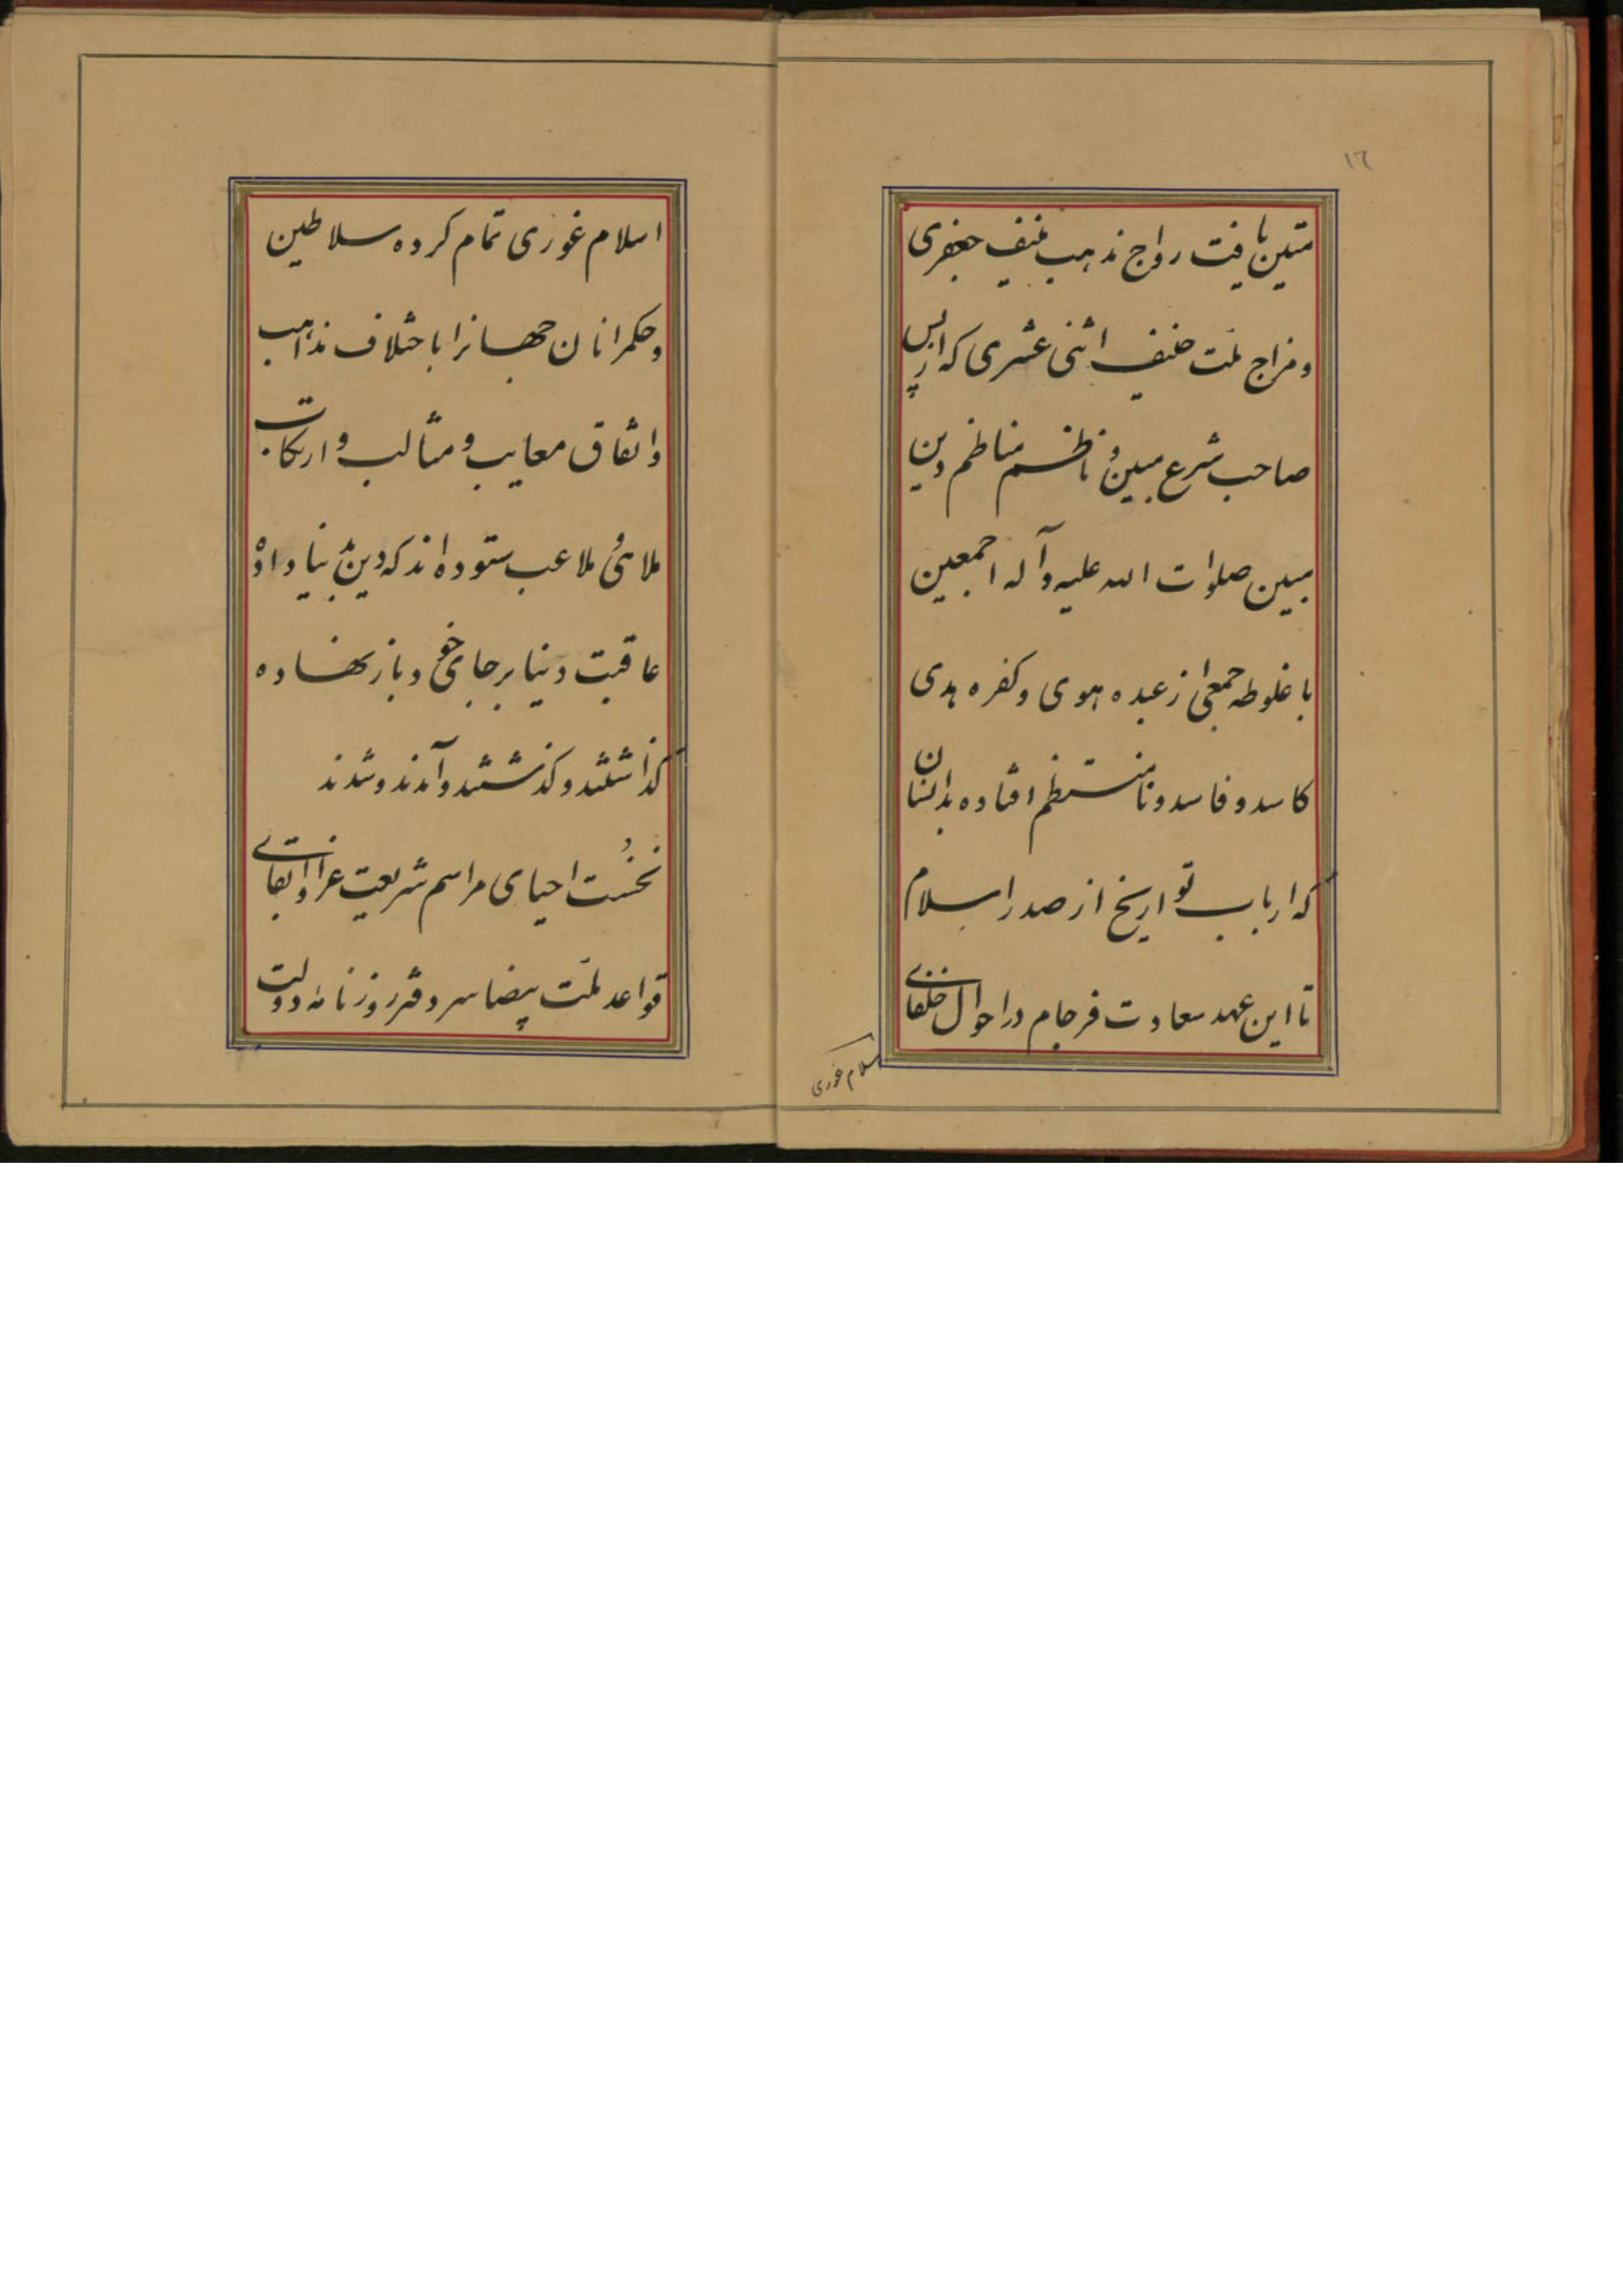 ١٦
متین یافت رواج مذهب منیف جعفری
و مزاج ملت حنیف اثنی عشری که از پس
صاحب شرع مبین و ناظم مناظم دین
مبین صلوات الله علیه و آله اجمعین
با غلوطه جمعی از عبده هوی و کفره هدی
کاسد و فاسد و نامنتظم افتاده بدانسان
که ارباب تواریخ از صدر اسلام
تا این عهد سعادت فرجام در احوال خلفای
اسلام غوری
اسلام غوری تمام کرده سلاطین
و حکمرانان جهانرا باختلاف مذاهب
و اتفاق معایب و مثالب و ارتکاب
ملاهی و ملاعب ستوده‌اند که دین بدنیا داده
عاقبت دنیا بر جای خود باز نهاده
گذاشتند و گذشتند و آمدند و شدند
نخست احیای مراسم شریعت غرا و ابقای
قواعد ملت بیضا سر دفتر روزنامه دولت